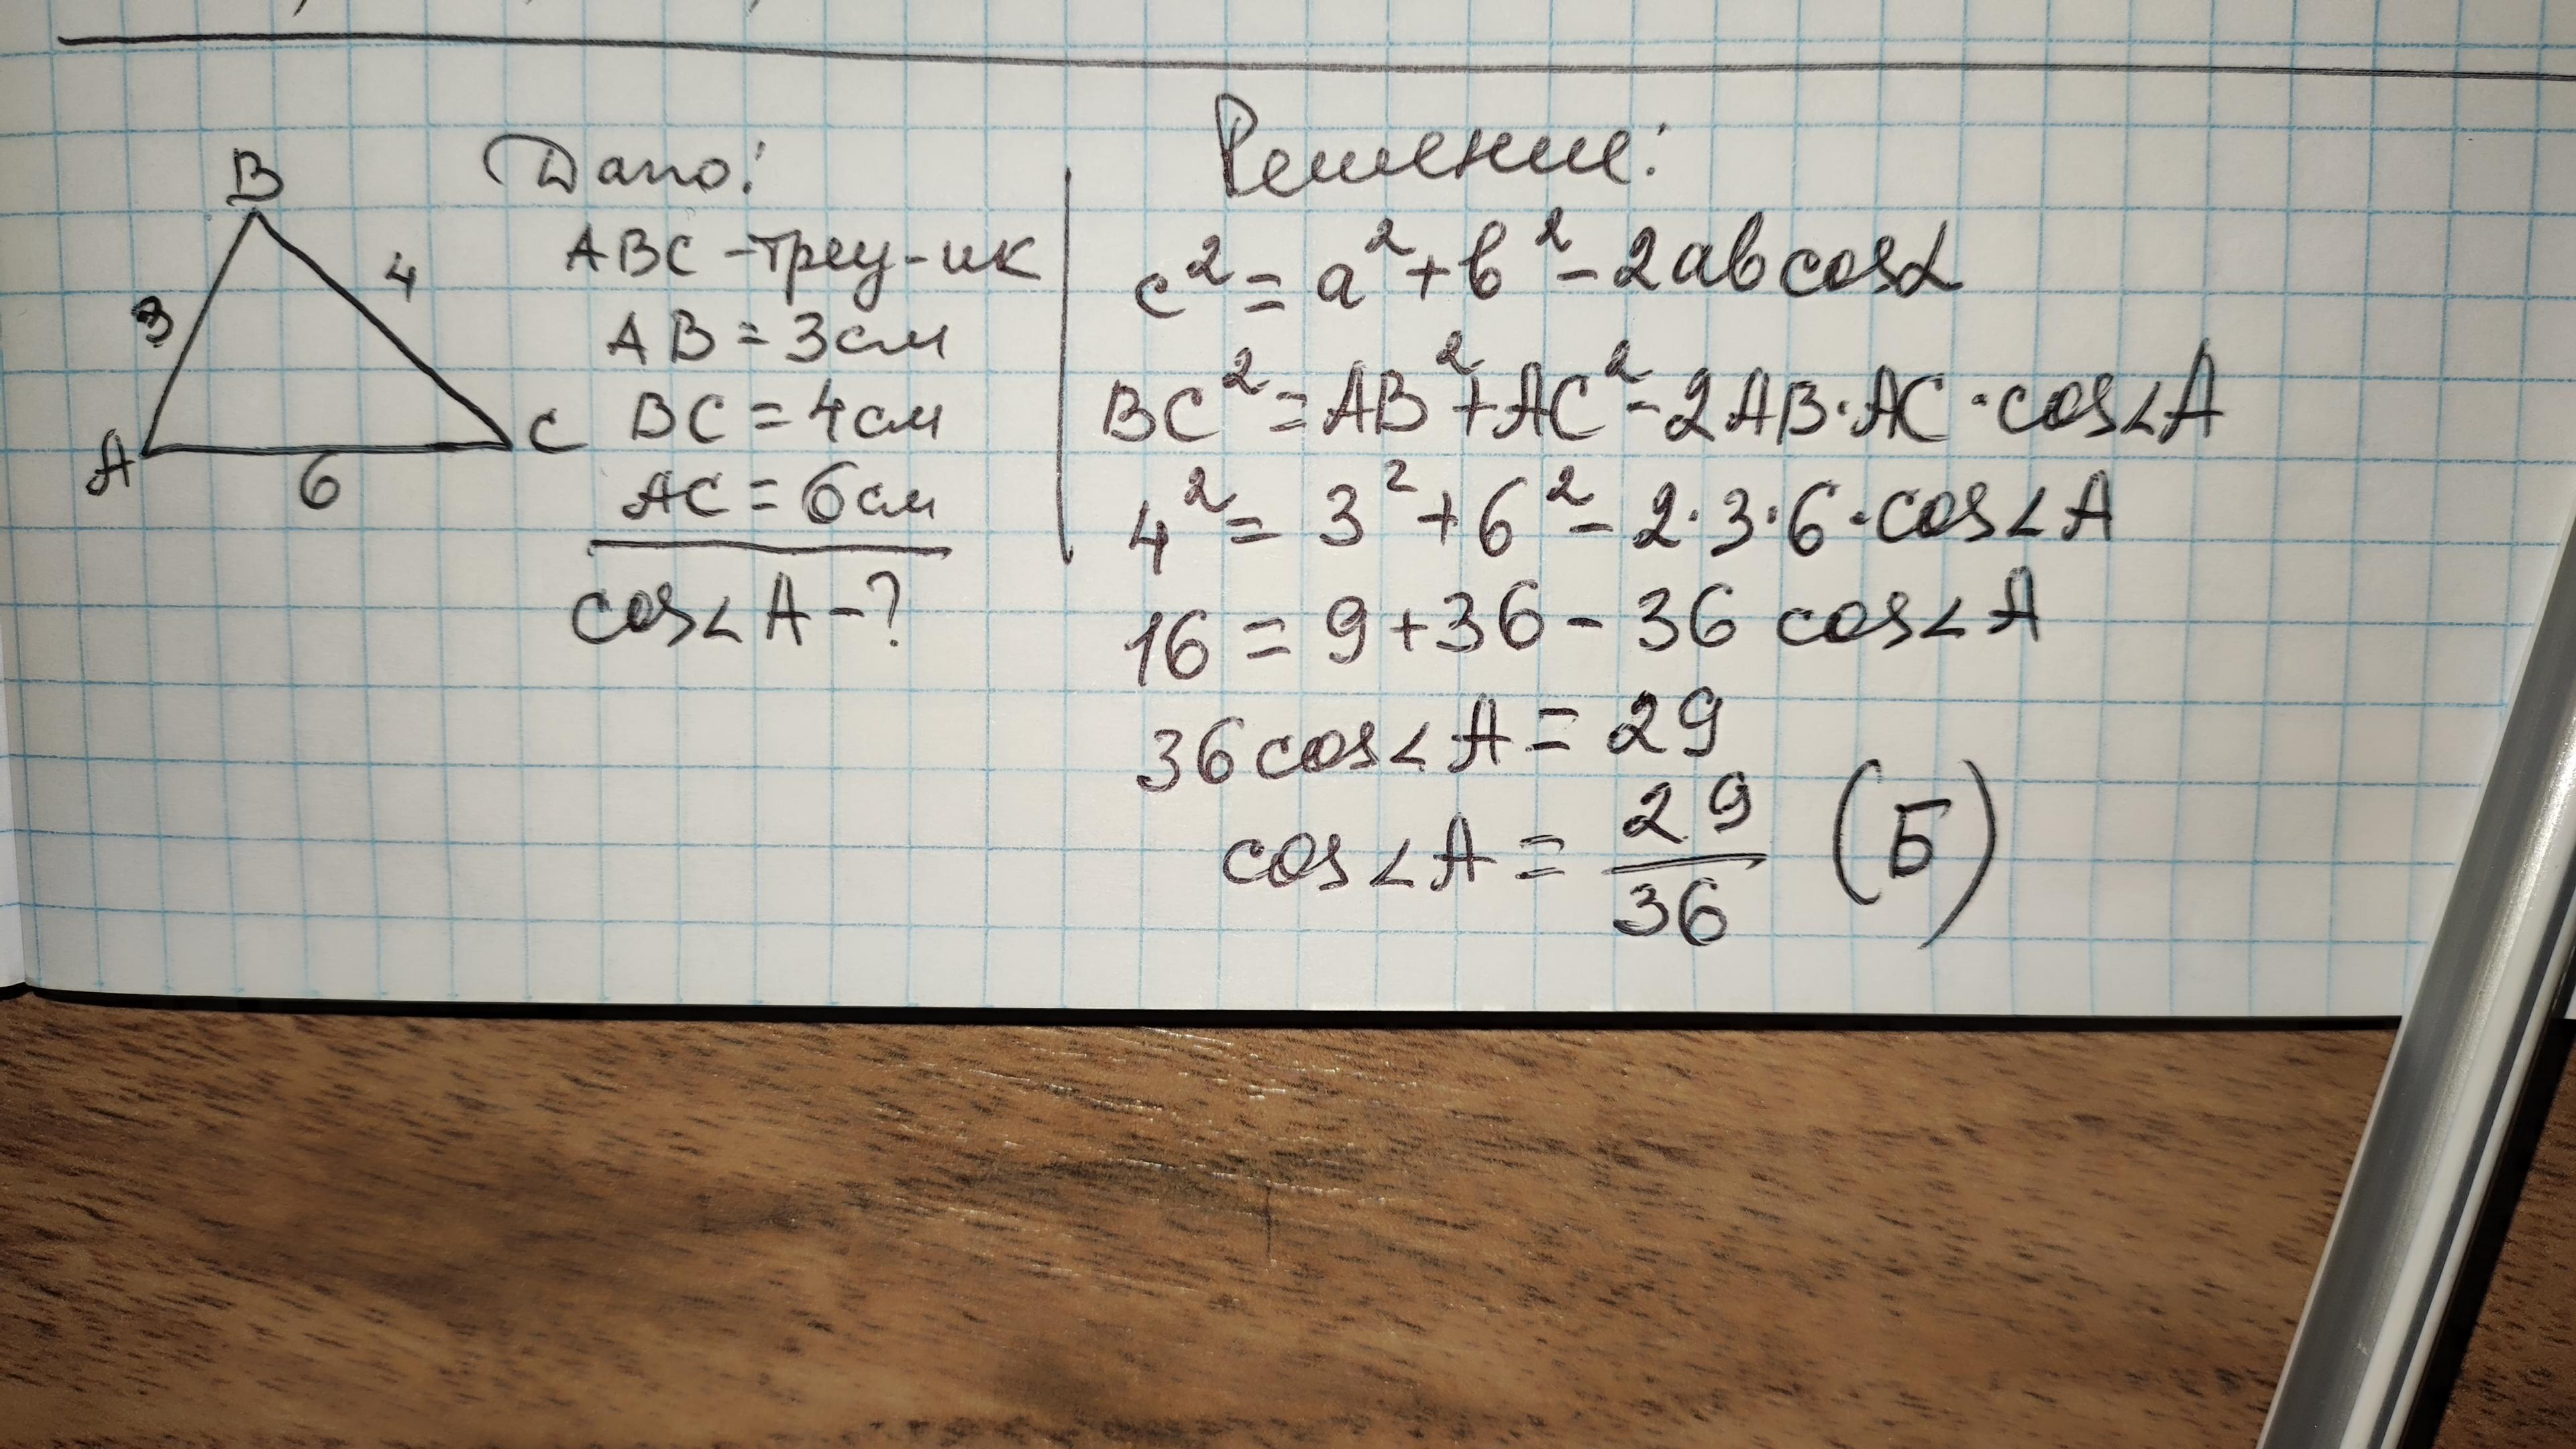 B
3
4
A
6
C
Дано:
ABC - треу-ик
AB = 3см
BC = 4см
AC = 6см
cos∠A - ?
Решение:
c² = a² + b² - 2ab cosα
BC² = AB² + AC² - 2AB·AC·cos∠A
4² = 3² + 6² - 2·3·6·cos∠A
16 = 9 + 36 - 36 cos∠A
36 cos∠A = 29
cos∠A = 29/36 (Б)